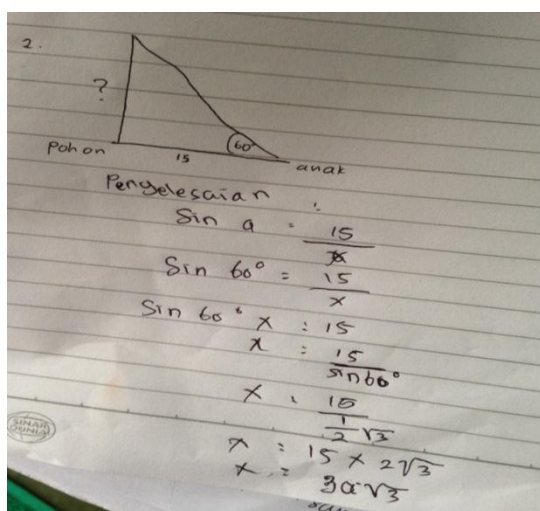 2.
?
60°
Pohon 15 anak
Penyelesaian :
Sin a = 15 / x
Sin 60° = 15 / x
Sin 60° x = 15
x = 15 / sin 60°
x = 15 / 1/2 √3
x = 15 × 2√3
x = 30√3
SINAR DUNIA